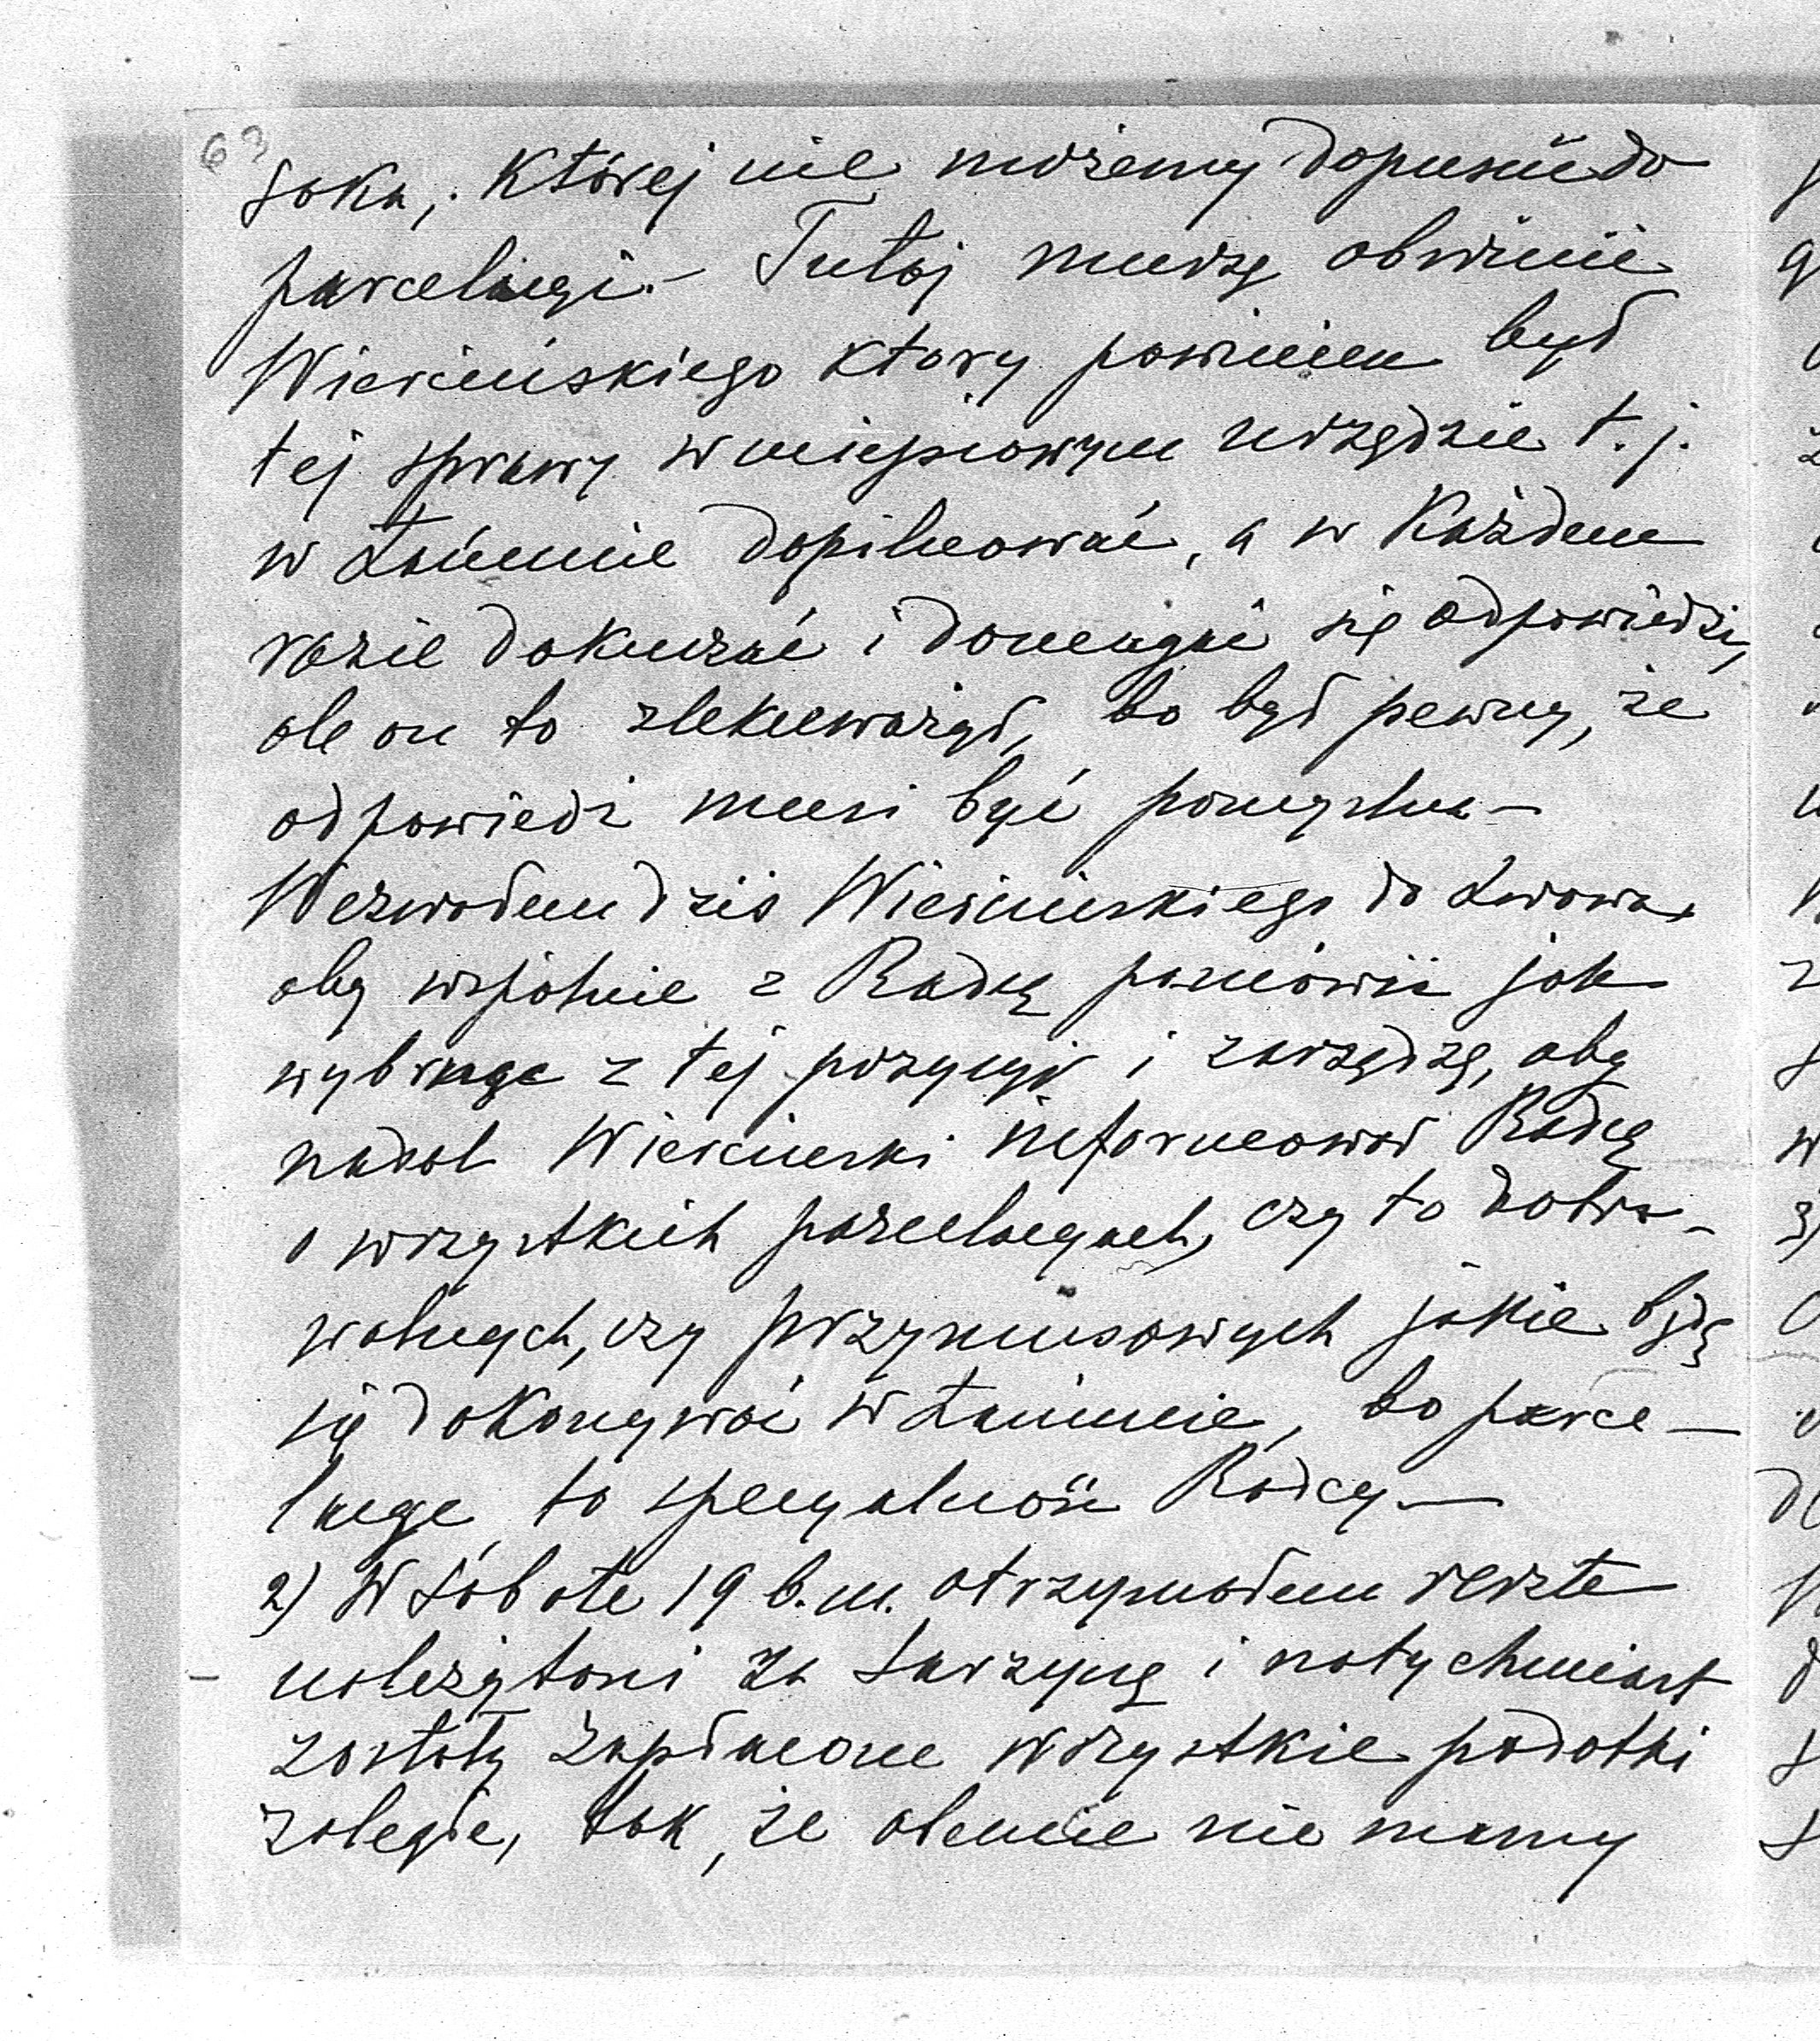 63
soka, której nie możemy dopuścić do
parcelacyi. — Tutaj muszę obwinić
Wiercińskiego który powinien był
tej sprawy w miejscowym urzędzie t. j.
w Łańcucie dopilnować, a w każdem
razie dokuczać i domagać się odpowiedzi,
ale on to zlekceważył, bo był pewny, że
odpowiedź musi być pomyślna —
Wezwałem dziś Wiercińskiego do Lwowa
aby wspólnie z Radcą pomówić jak
wybrnąć z tej pozycyi i zarządzę, aby
nadal Wierciński informował Radcę
o wszystkich parcelacyach, czy to dobro-
wolnych, czy przymusowych jakie będą
się dokonywać w Łańcucie, bo parce-
lacye, to specyalność Radcy —
2) W sobotę 19 b. m. otrzymałem resztę
należytości za Sarzynę i natychmiast
zostały zapłacone wszystkie podatki
zaległe, tak, że obecnie nie mamy